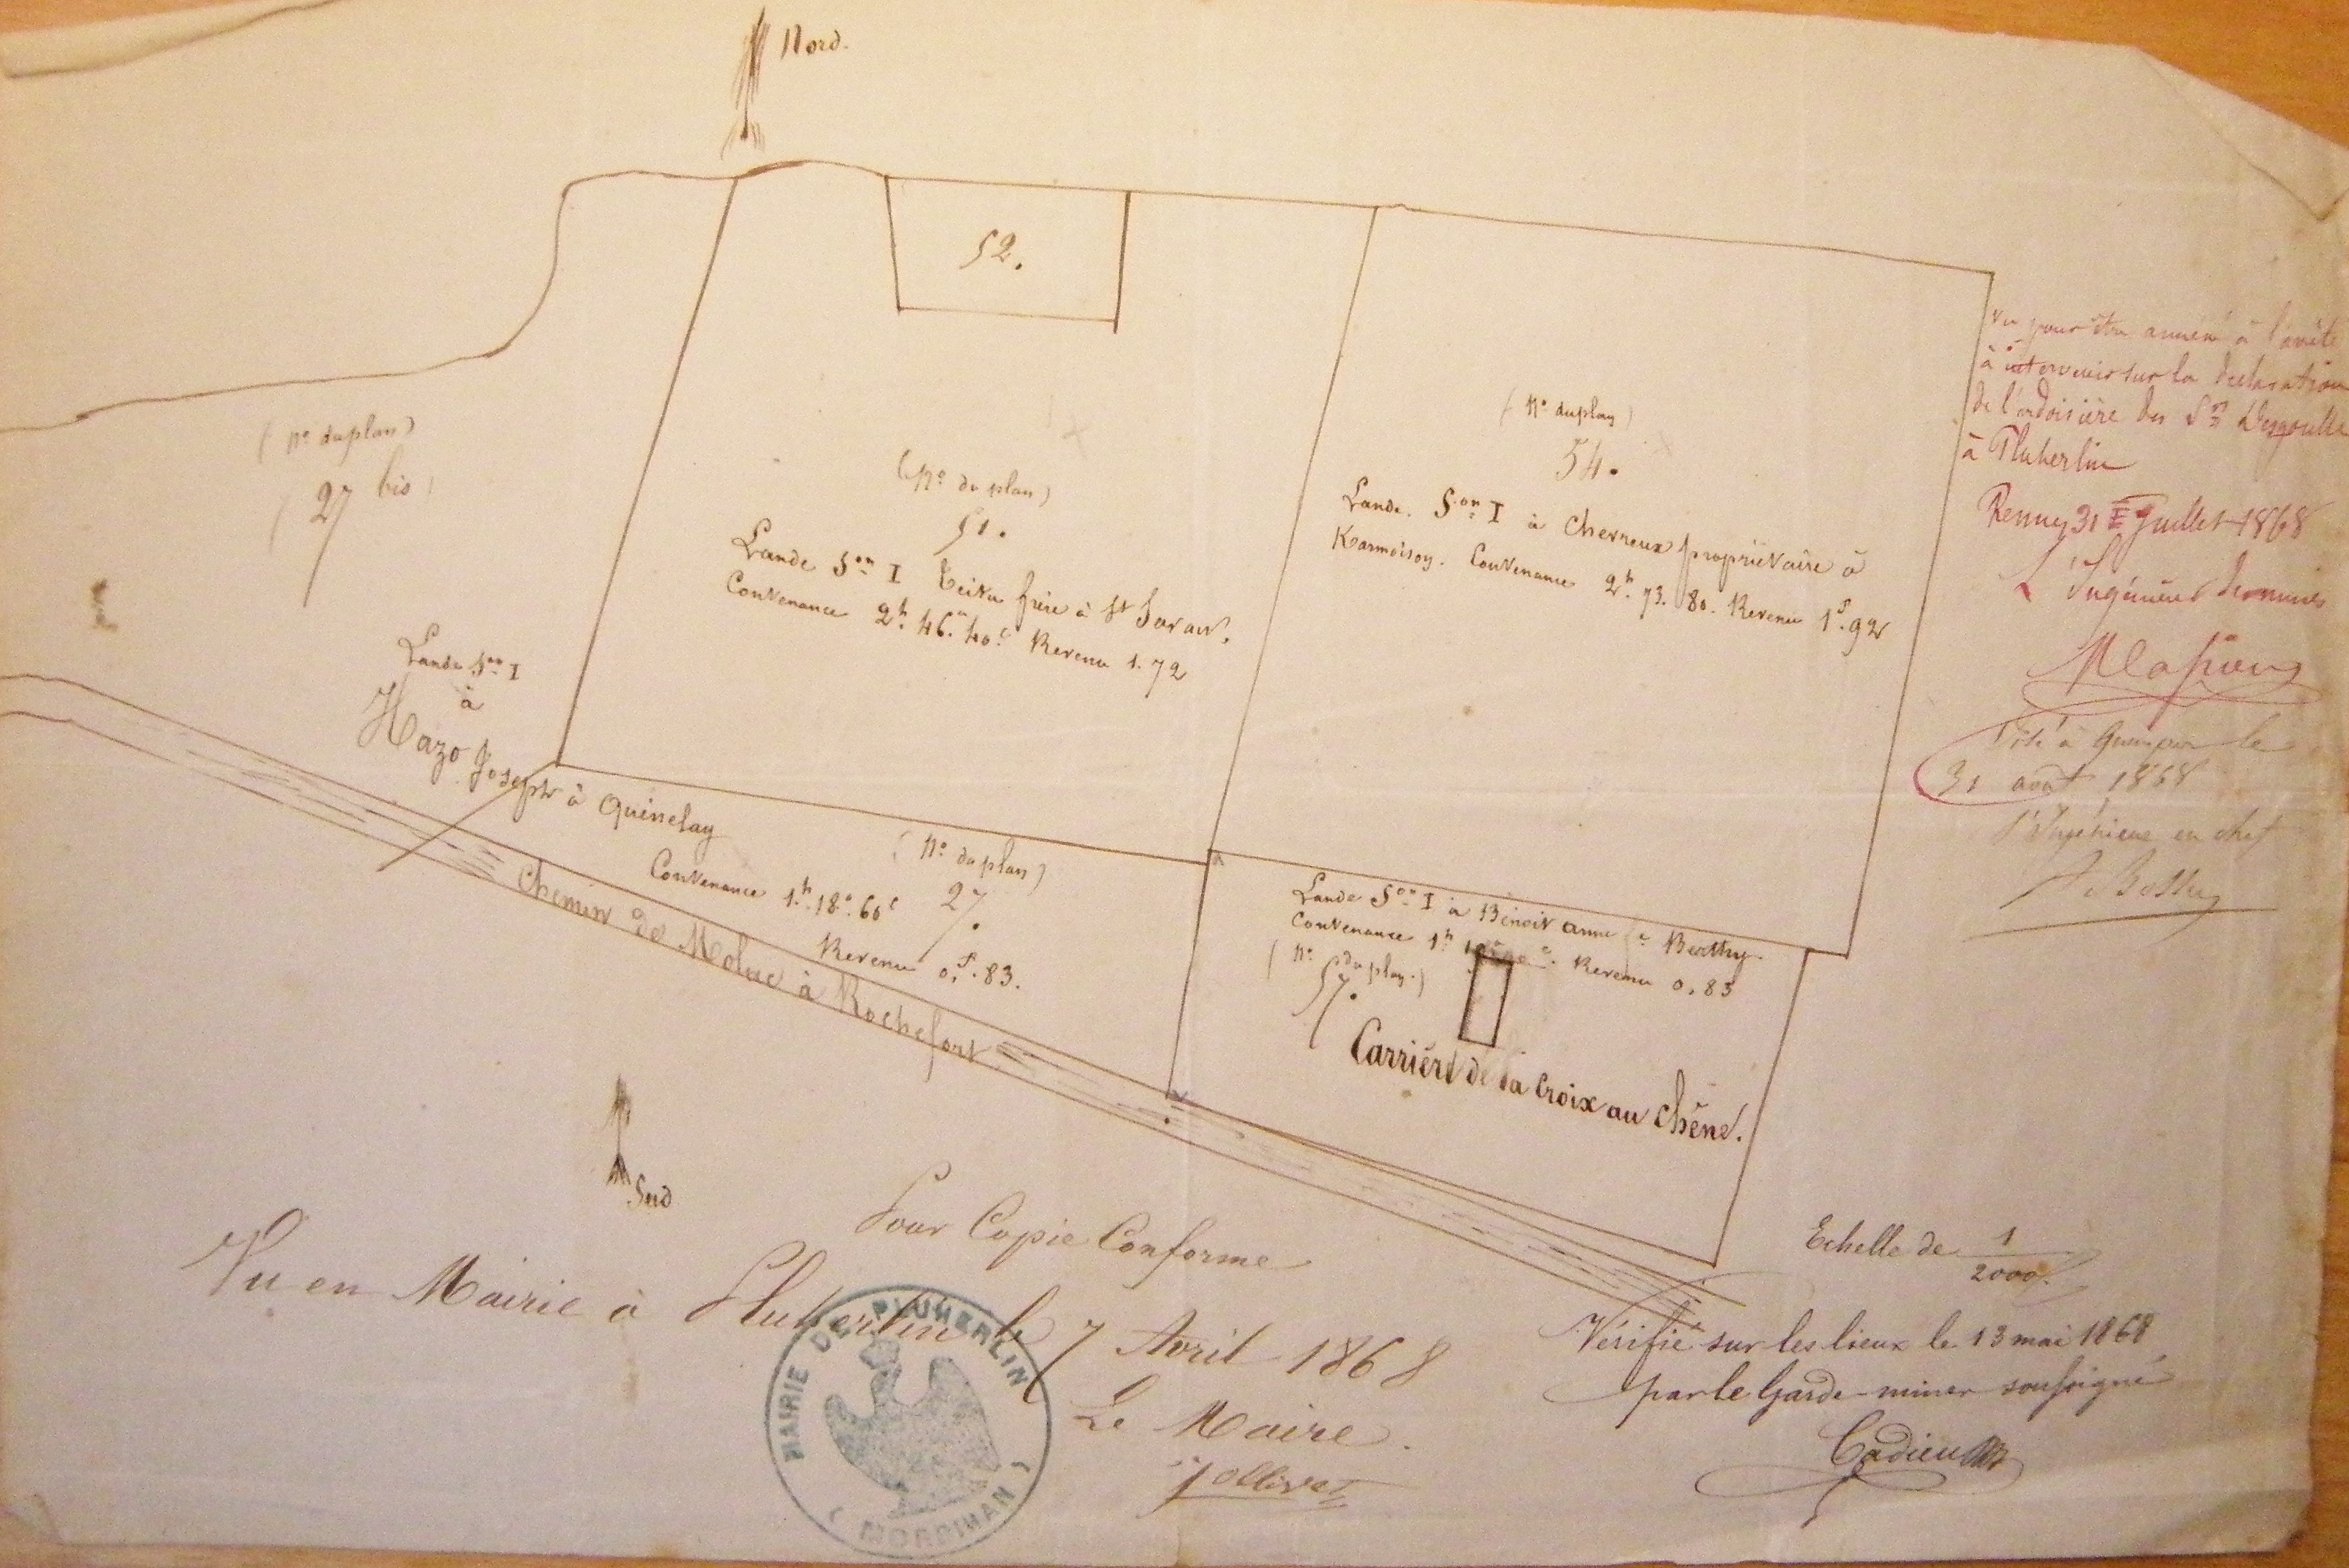 Nord.
52.
(N° du plan)
27 bis
Lande Son I
à
Hazo Joseph à Quinelay
Contenance 1h. 18a. 60c
(N° du plan)
27.
Revenu 0f. 83.
(N° du plan)
51.
Lande Son I frère à St
Contenance 2h. 46a. 40c. Revenu 1.72
(N° du plan)
54.
Lande. Son I à Cherneux propriétaire à
Contenance 2h. 73. 80. Revenu 1f. 92
Lande Son I à Benoit anne
Contenance 1h Revenu 0.83
(N° du plan.)
57.
Carrière de la Croix au Chêne.
Chemin de Moluc à Rochefort
Sud
vu pour être annexé à l'arrêté
à intervenir sur la déclaration
de l'ardoisière des Srs
à Pluherlin
Rennes 31 Juillet 1868
L'Ingénieur des mines
le
31 août 1868
l'Ingénieur en chef
Echelle de 1/2000.
Vérifié sur les lieux le 13 mai 1868
par le Garde-mines soussigné
Cadieu
Pour Copie Conforme
Vu en Mairie à Pluherlin le 7 Avril 1868
Le Maire.
Jollivet
MAIRIE DE PLUHERLIN
(MORBIHAN)